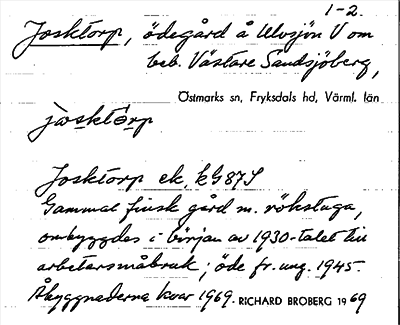 1-2.
Josktorp, ödegård å Ulvsjön V om
beb. Västare Sandsjöberg,
Östmarks sn, Fryksdals hd, Värml. län
Josktorp ek, kG87S
Gammal finsk gård m. rökstuga,
ombyggdes i början av 1930-talet till
arbetarsmåbruk; öde fr. ung. 1945.
Åbyggnaderna kvar 1969. RICHARD BROBERG 1969